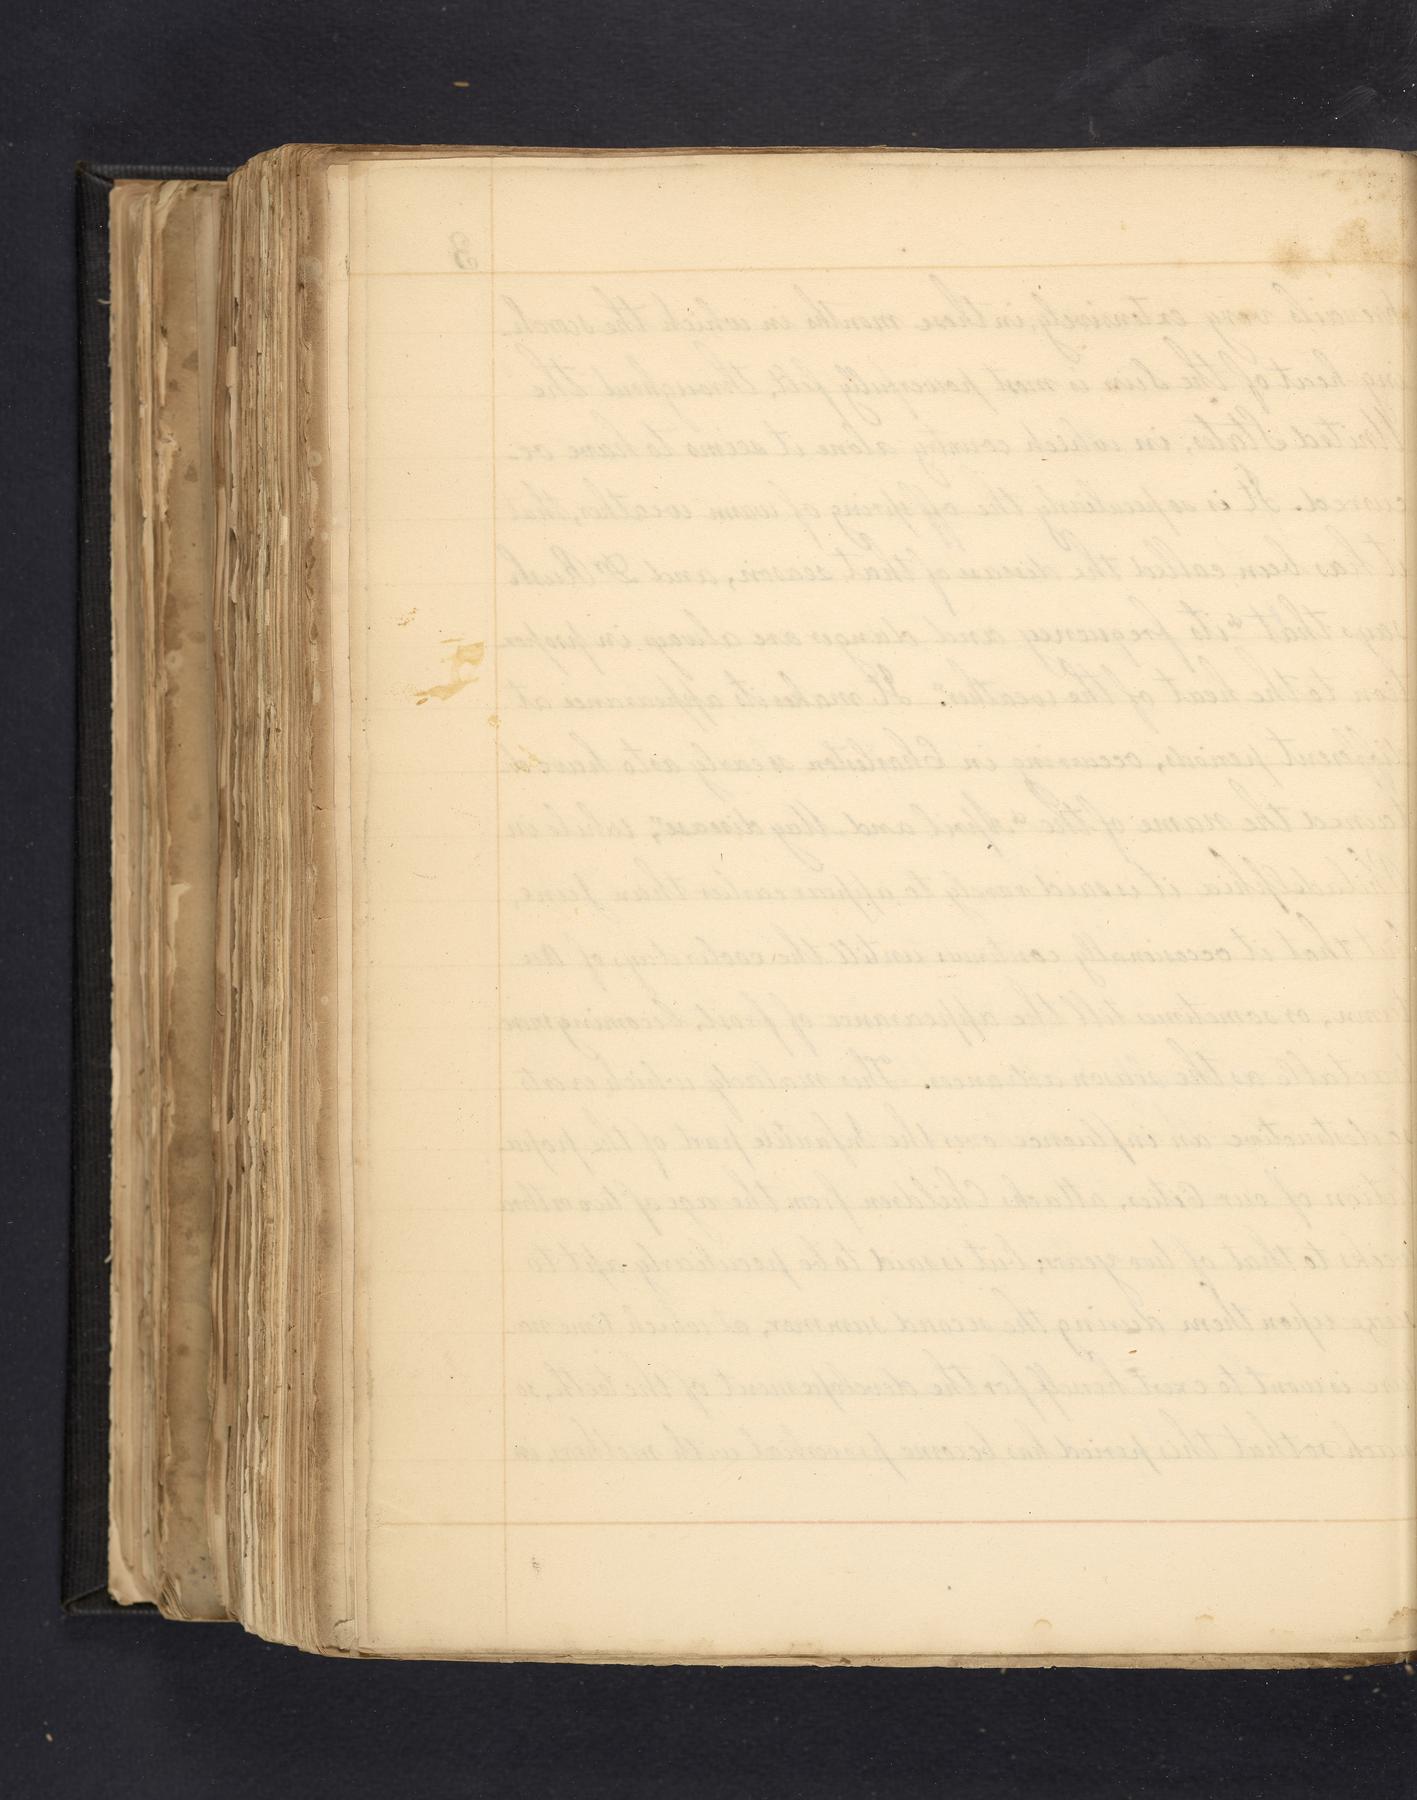 3
prevails very extensively, in those months in which the scorch-
ing heat of the Sun is most powerfully felt, throughout the
United States, in which country alone it seems to have oc-
curred. It is so peculiarly the offspring of warm weather, that
it has been called the disease of that season, and Dr Rush
says that "its frequency and danger are always in propor
tion to the heat of the weather". It makes its appearance at
different periods, occurring in Charleston so early as to have
the name of the "April and May disease", while in
Philadelphia it is said rarely to appear earlier than June,
but that it occasionally continues untill the cooler days of Au
tumn, or sometimes till the appearance of frost, becoming more
as the season advances. This malady which exerts
so destructive an influence over the Infantile part of the popu
lation of our Cities, attacks Children from the age of two or three
weeks to that of two years; but is said to be peculiarly apt to
seize upon them during the second summer, at which time na
ture is wont to exert herself for the developement of the teeth, so
much so that this period has become proverbial with mothers, in